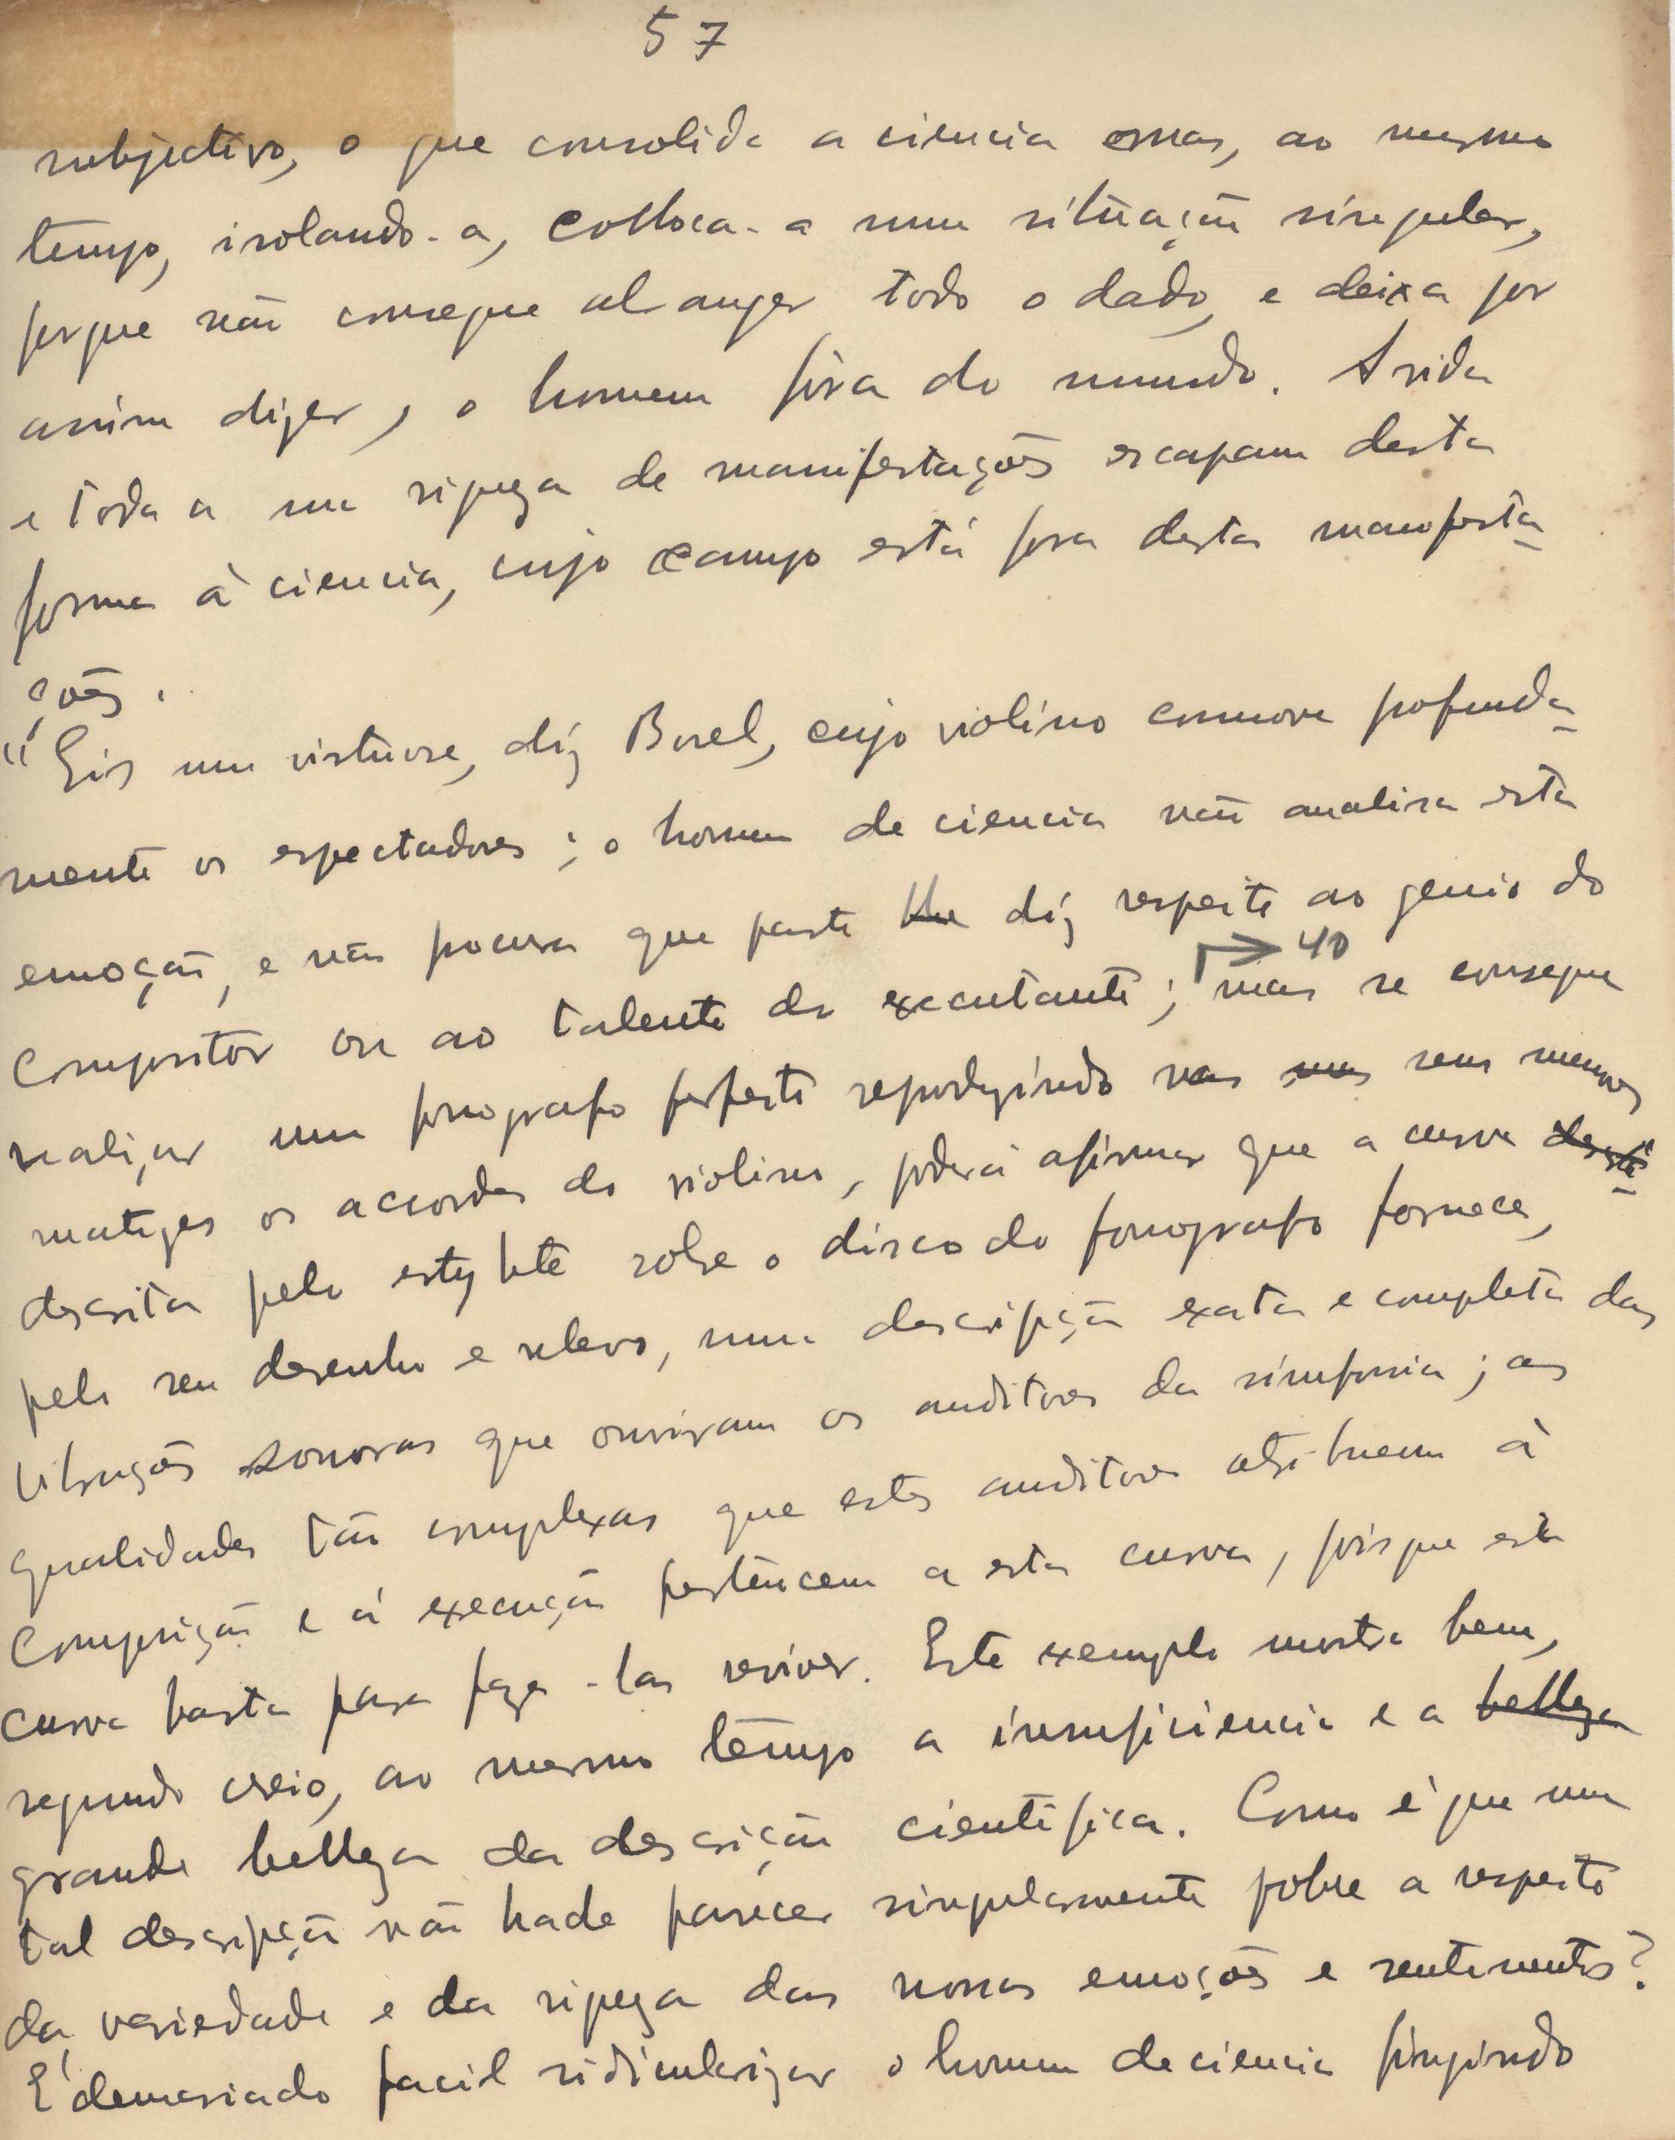 57
subjectivo, o que consolida a ciencia mas, ao mesmo
tempo, isolando-a, colloca-a numa situação singular,
porque não consegue abranger todo o dado, e deixa por
assim dizer, o homem fóra do mundo. A vida
e toda a sua riqueza de manifestações escapam desta
forma à ciencia, cujo campo está fora destas manifesta-
ções.
"Eis um virtuose, diz Borel, cujo violino commove profunda-
mente os espectadores; o homem de ciencia não analisa esta
emoção, e não procura que parte diz respeito ao genio do
compositor ou ao talento do executante; mas se consegue
40
realizar um fonografo perfeito reproduzindo nas seus menores
matizes os accordes do violino, poderá afirmar que a curva
descrita pelo estylete sobre o disco do fonografo fornece,
pelo seu desenho e relevo, uma descripção exata e completa das
vibrações sonoras que ouviram os auditores da simfonia; as
qualidades tão complexas que estes auditores atribuem à
composição e á execução pertencem a esta curva, pois que esta
curva basta para faze-las reviver. Este exemplo mostra bem,
segundo creio, ao mesmo tempo a insuficiencia e a belleza
grande belleza da descrição cientifica. Como é que uma
tal descripção não hade parecer singularmente pobre a respeito
da variedade e da riqueza das nossas emoções e sentimentos?
E' demasiado facil ridicularizar o homem de ciencia fingindo